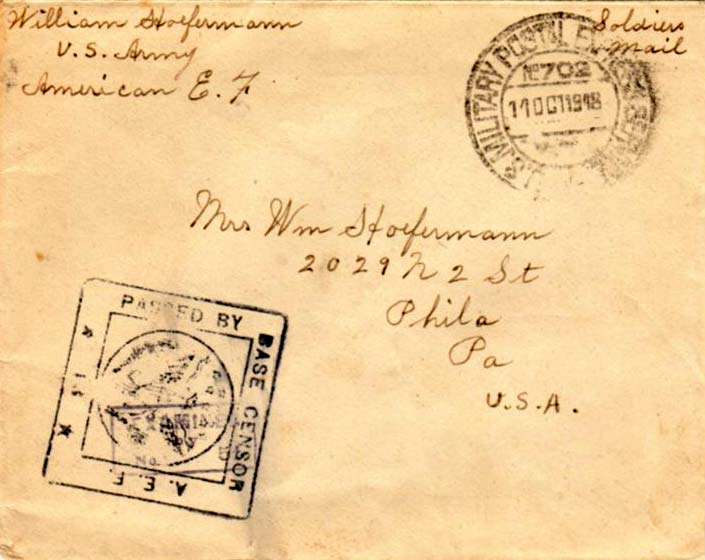 William Hoefermann
U.S. Army
American E. F
Soldiers
Mail
U.S. MILITARY POSTAL
No 702
11 OCT 1918
Mrs Wm Hoefermann
2029 N 2 St
Phila
Pa
U.S.A.
PASSED BY
BASE CENSOR
A. E. F.